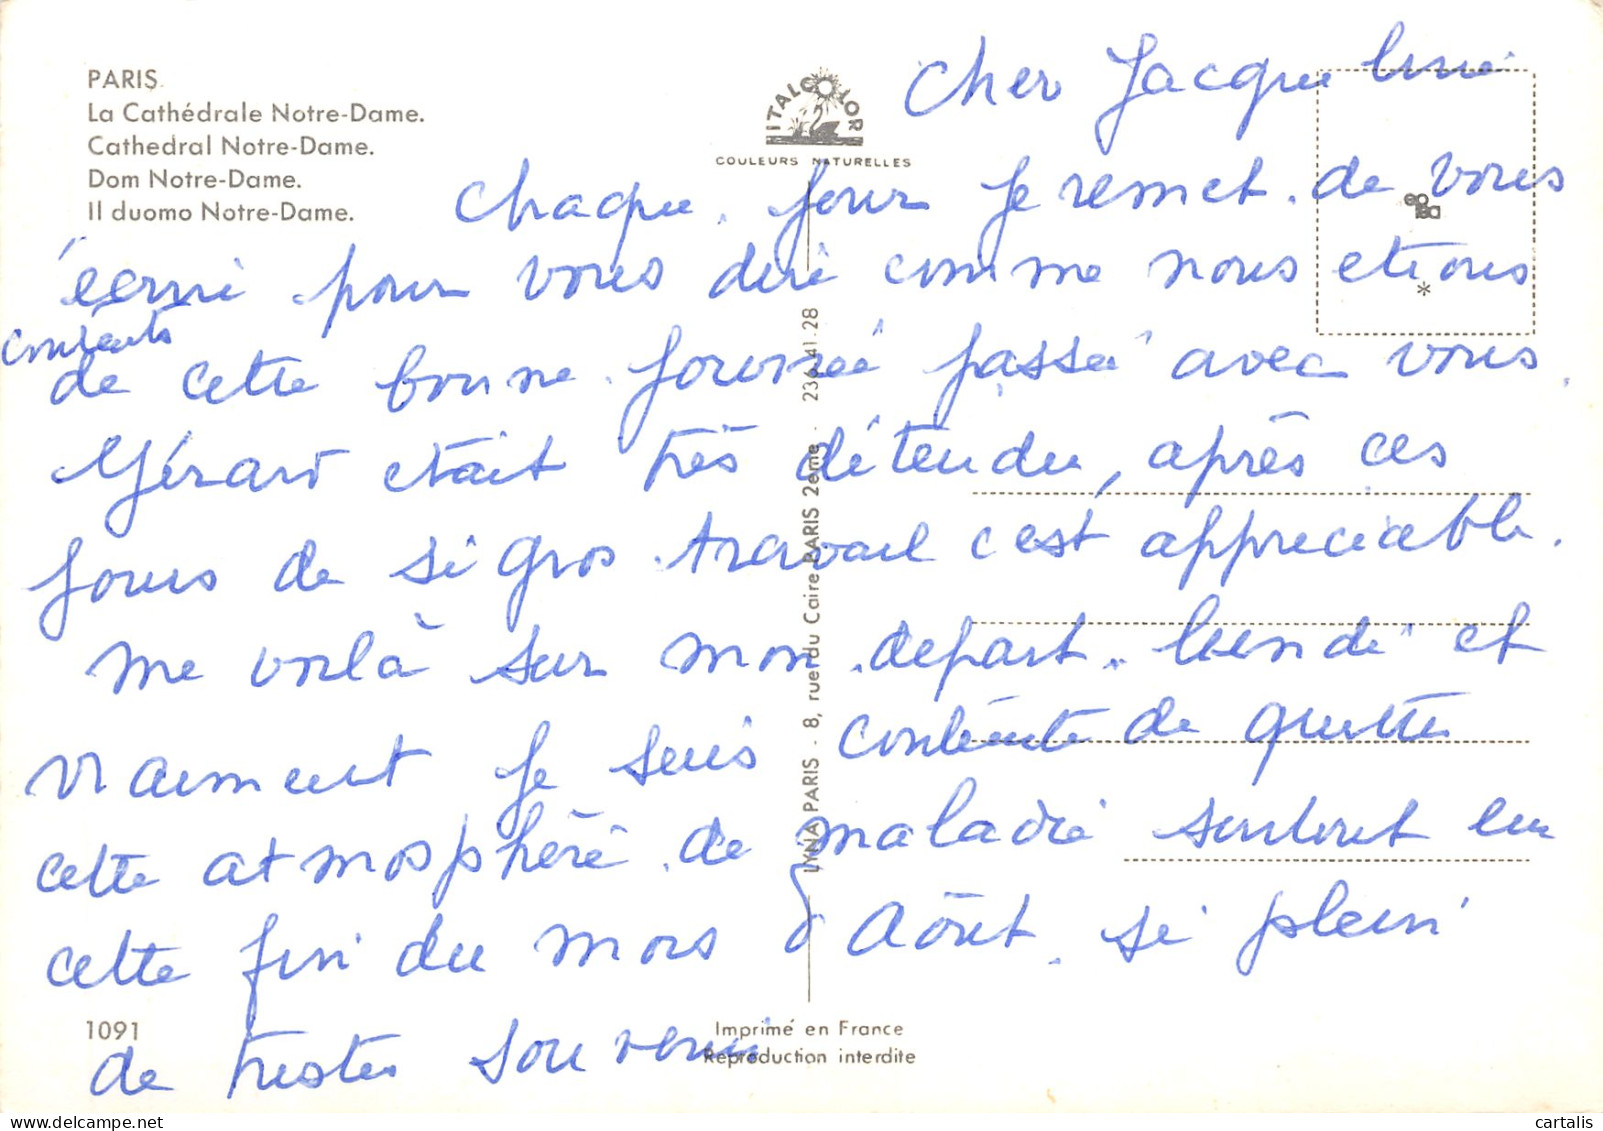 PARIS.
La Cathédrale Notre-Dame.
Cathedral Notre-Dame.
Dom Notre-Dame.
Il duomo Notre-Dame.
ITALCOLOR
COULEURS NATURELLES
Cher Jacqueline
Chaque jour je remet de vous
écrire pour vous dire comme nous etions
contents
de cette bonne journée passée avec vous.
Gérard etait très détendu, après ces
jours de si gros travail c'est appreciable.
me voilà sur mon depart lundi et
vraiment je suis contente de quitter
cette atmosphère de maladie surtout en
cette fin du mois d'Aôut si plein
de tristes souvenir
LYNA PARIS - 8, rue du Caire PARIS 2ème - 236 41 28
1091
Imprimé en France
Reproduction interdite
cartalis